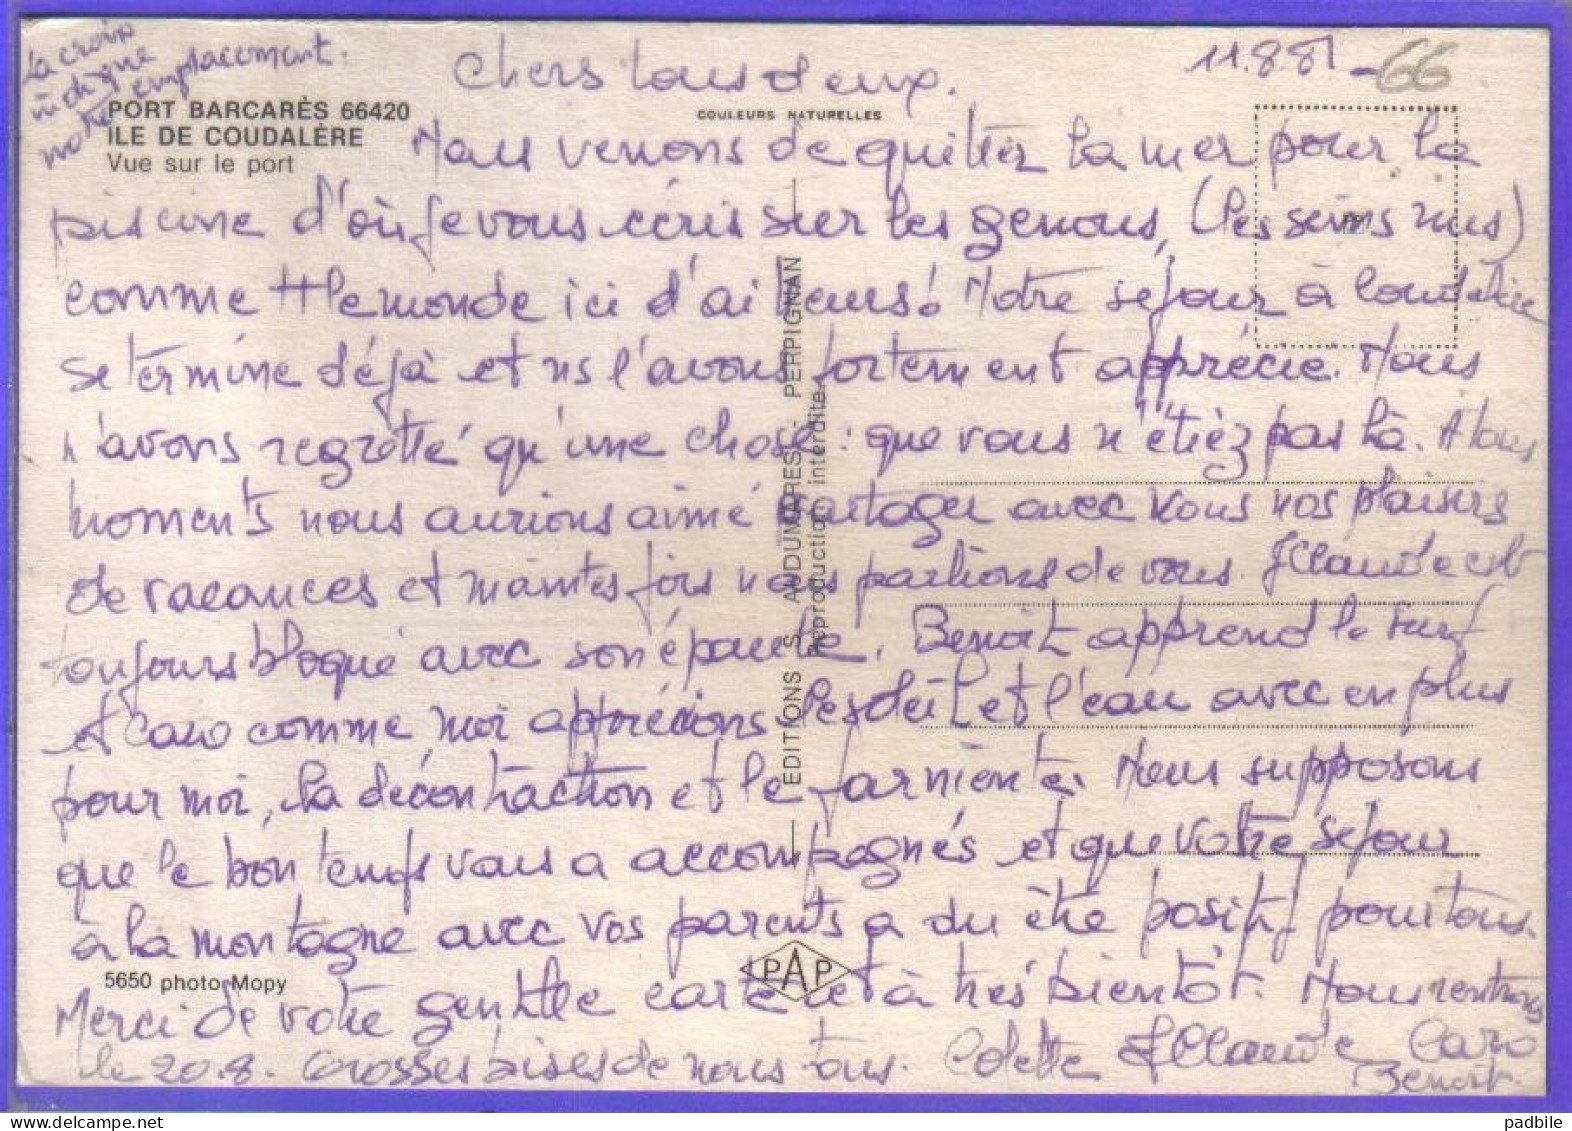 La croix
indique
notre emplacement.
11.8.81 - 66
Chers tous deux.
PORT BARCARÈS 66420
ILE DE COUDALÈRE
Vue sur le port
COULEURS NATURELLES
Nous venons de quitter la mer pour la
piscine d'où je vous écris sur les genous, (les seins nus)
comme tt le monde ici d'ailleurs! Notre séjour à Coudalère
se termine déjà et ns l'avons fortement apprécié. Nous
n'avons regretté qu'une chose : que vous n'étiez pas là. A tous
moments nous aurions aimé partager avec vous nos plaisirs
de vacances et maintes fois nous parlions de vous. JClaude est
toujours bloqué avec son épaule. Benoit apprend le surf
et Caro comme moi apprécions le soleil et l'eau avec en plus
pour moi, la décontraction et le farniente. Nous supposons
que le bon temps vous a accompagnés et que votre séjour
à la montagne avec vos parents a du être positif pour tous.
Merci de votre gentille carte et à très bientôt. Nous rentrons
le 20.8. Grosses bises de nous tous. Colette JClaude Caro
Benoit.
EDITIONS S. AUDUMARES - PERPIGNAN
Reproduction interdite.
5650 photo Mopy
PAP
padbile